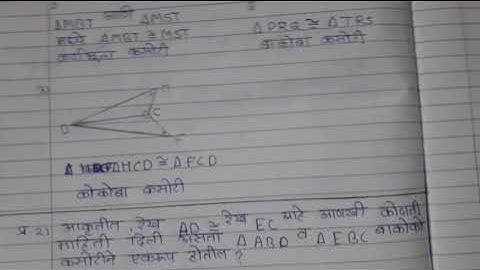 ΔMBT आणि ΔMST
मध्ये ΔMBT ≅ MST
कसोटी
ΔPRQ ≅ ΔTRS
बाकोबा कसोटी
D
C
ΔHCD ≅ ΔFCD
कोकोबा कसोटी
प्र 2) आकृतीत, रेख AD ≅ रेख EC आणखी कोणती
माहिती दिली असता ΔABD व ΔEBC बाकोको
कसोटीने एकरूप होतील?